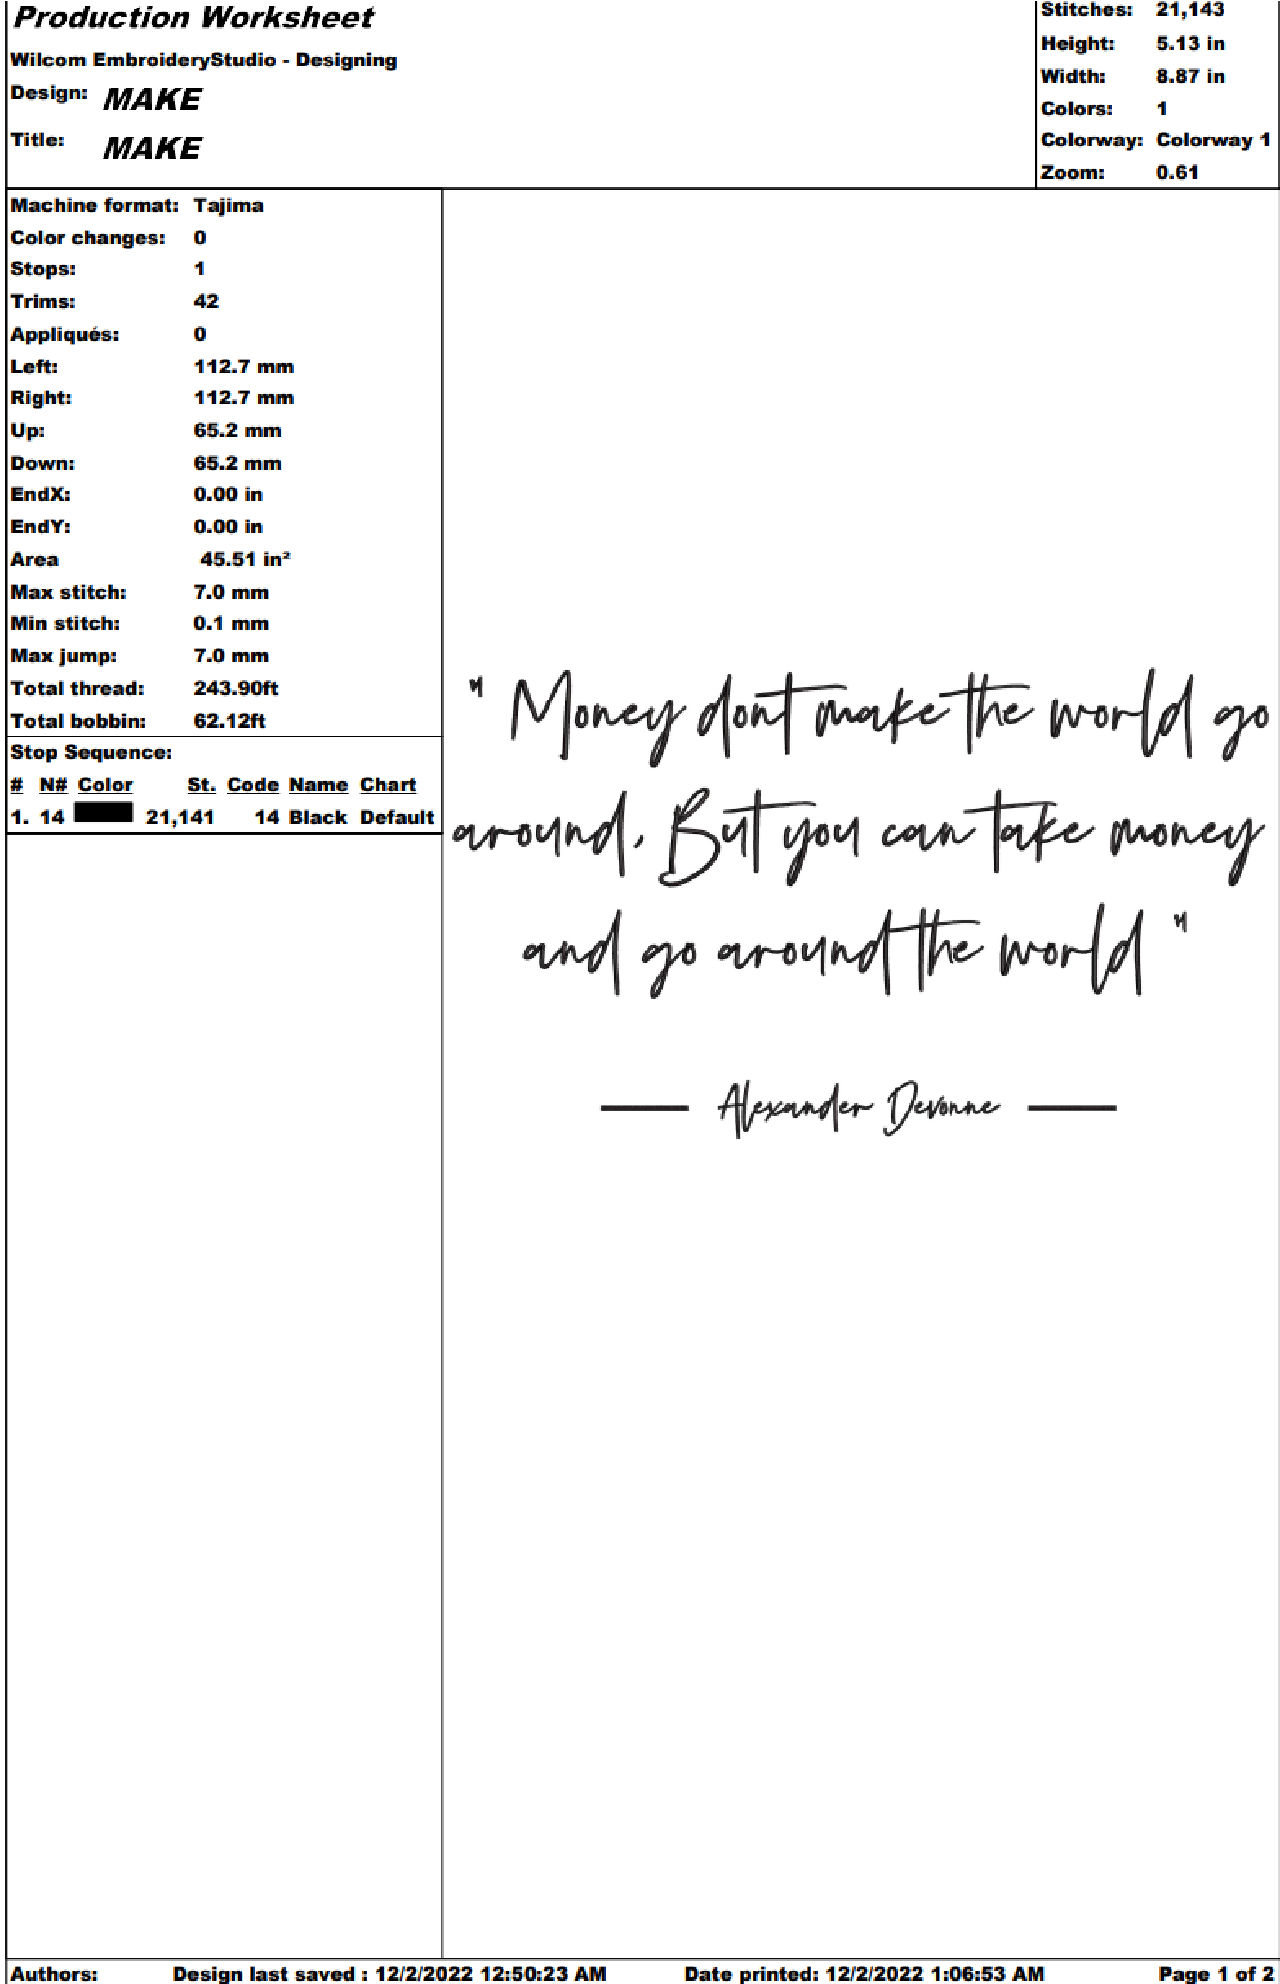 Production Worksheet
Wilcom EmbroideryStudio - Designing
Design: MAKE
Title: MAKE
Stitches: 21,143
Height: 5.13 in
Width: 8.87 in
Colors: 1
Colorway: Colorway 1
Zoom: 0.61
Machine format: Tajima
Color changes: 0
Stops: 1
Trims: 42
Appliqués: 0
Left: 112.7 mm
Right: 112.7 mm
Up: 65.2 mm
Down: 65.2 mm
EndX: 0.00 in
EndY: 0.00 in
Area 45.51 in²
Max stitch: 7.0 mm
Min stitch: 0.1 mm
Max jump: 7.0 mm
Total thread: 243.90ft
Total bobbin: 62.12ft
Stop Sequence:
# N# Color St. Code Name Chart
1. 14 21,141 14 Black Default
" Money dont make the world go
around, But you can take money
and go around the world "
Alexander Devonne
Authors: Design last saved : 12/2/2022 12:50:23 AM Date printed: 12/2/2022 1:06:53 AM Page 1 of 2